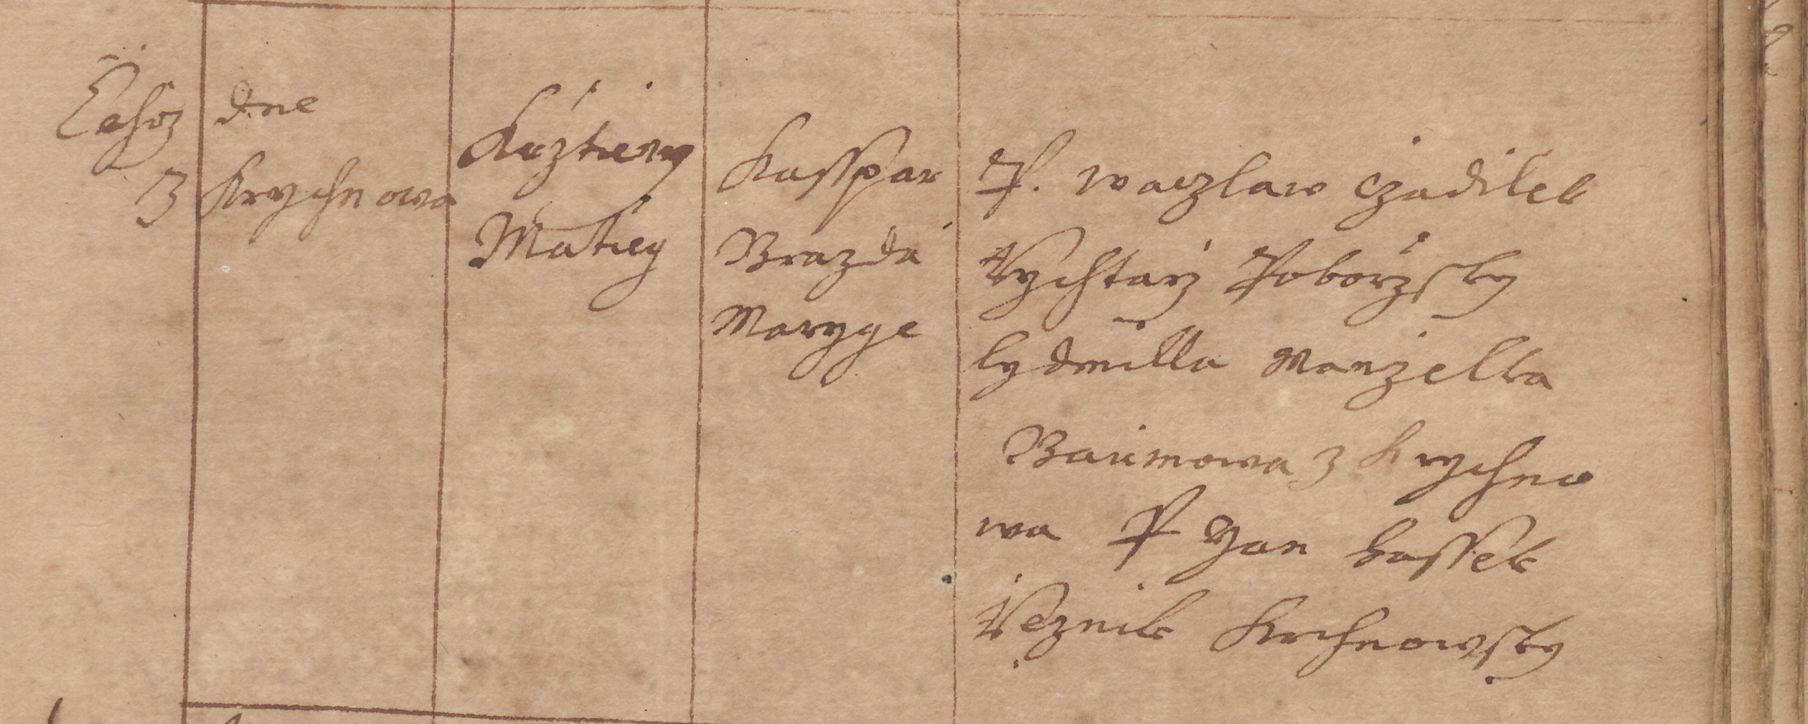 Téhož dne
z Krychnowa
Kržtieny
Matieg
Kasspar
Brazda
Maryge
P. Waczlaw Czadilek
Rychtarz Poboržsky
lydmilla Manzelka
Baurmowa z Krychno
wa P Jan Hassek
Ržeznik Krchnowsky